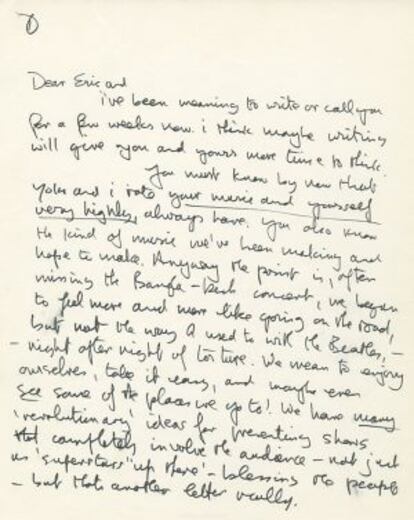 Dear Eric and
i've been meaning to write or call you
for a few weeks now. i think maybe writing
will give you and yours more time to think.
You must know by now that
Yoko and i rate your music and yourself
very highly, always have. You also know
the kind of music we've been making and
hope to make. Anyway the point is, after
missing the Bangla-Desh concert, we began
to feel more and more like going on the road,
but not the way I used to with the Beatles, -
- night after night of torture. We mean to enjoy
ourselves, take it easy, and maybe even
see some of the places we go to! We have many
'revolutionary' ideas for presenting shows
that completely involve the audience - not just
as 'superstars' 'up there' - blessing the people
- but thats another letter really.